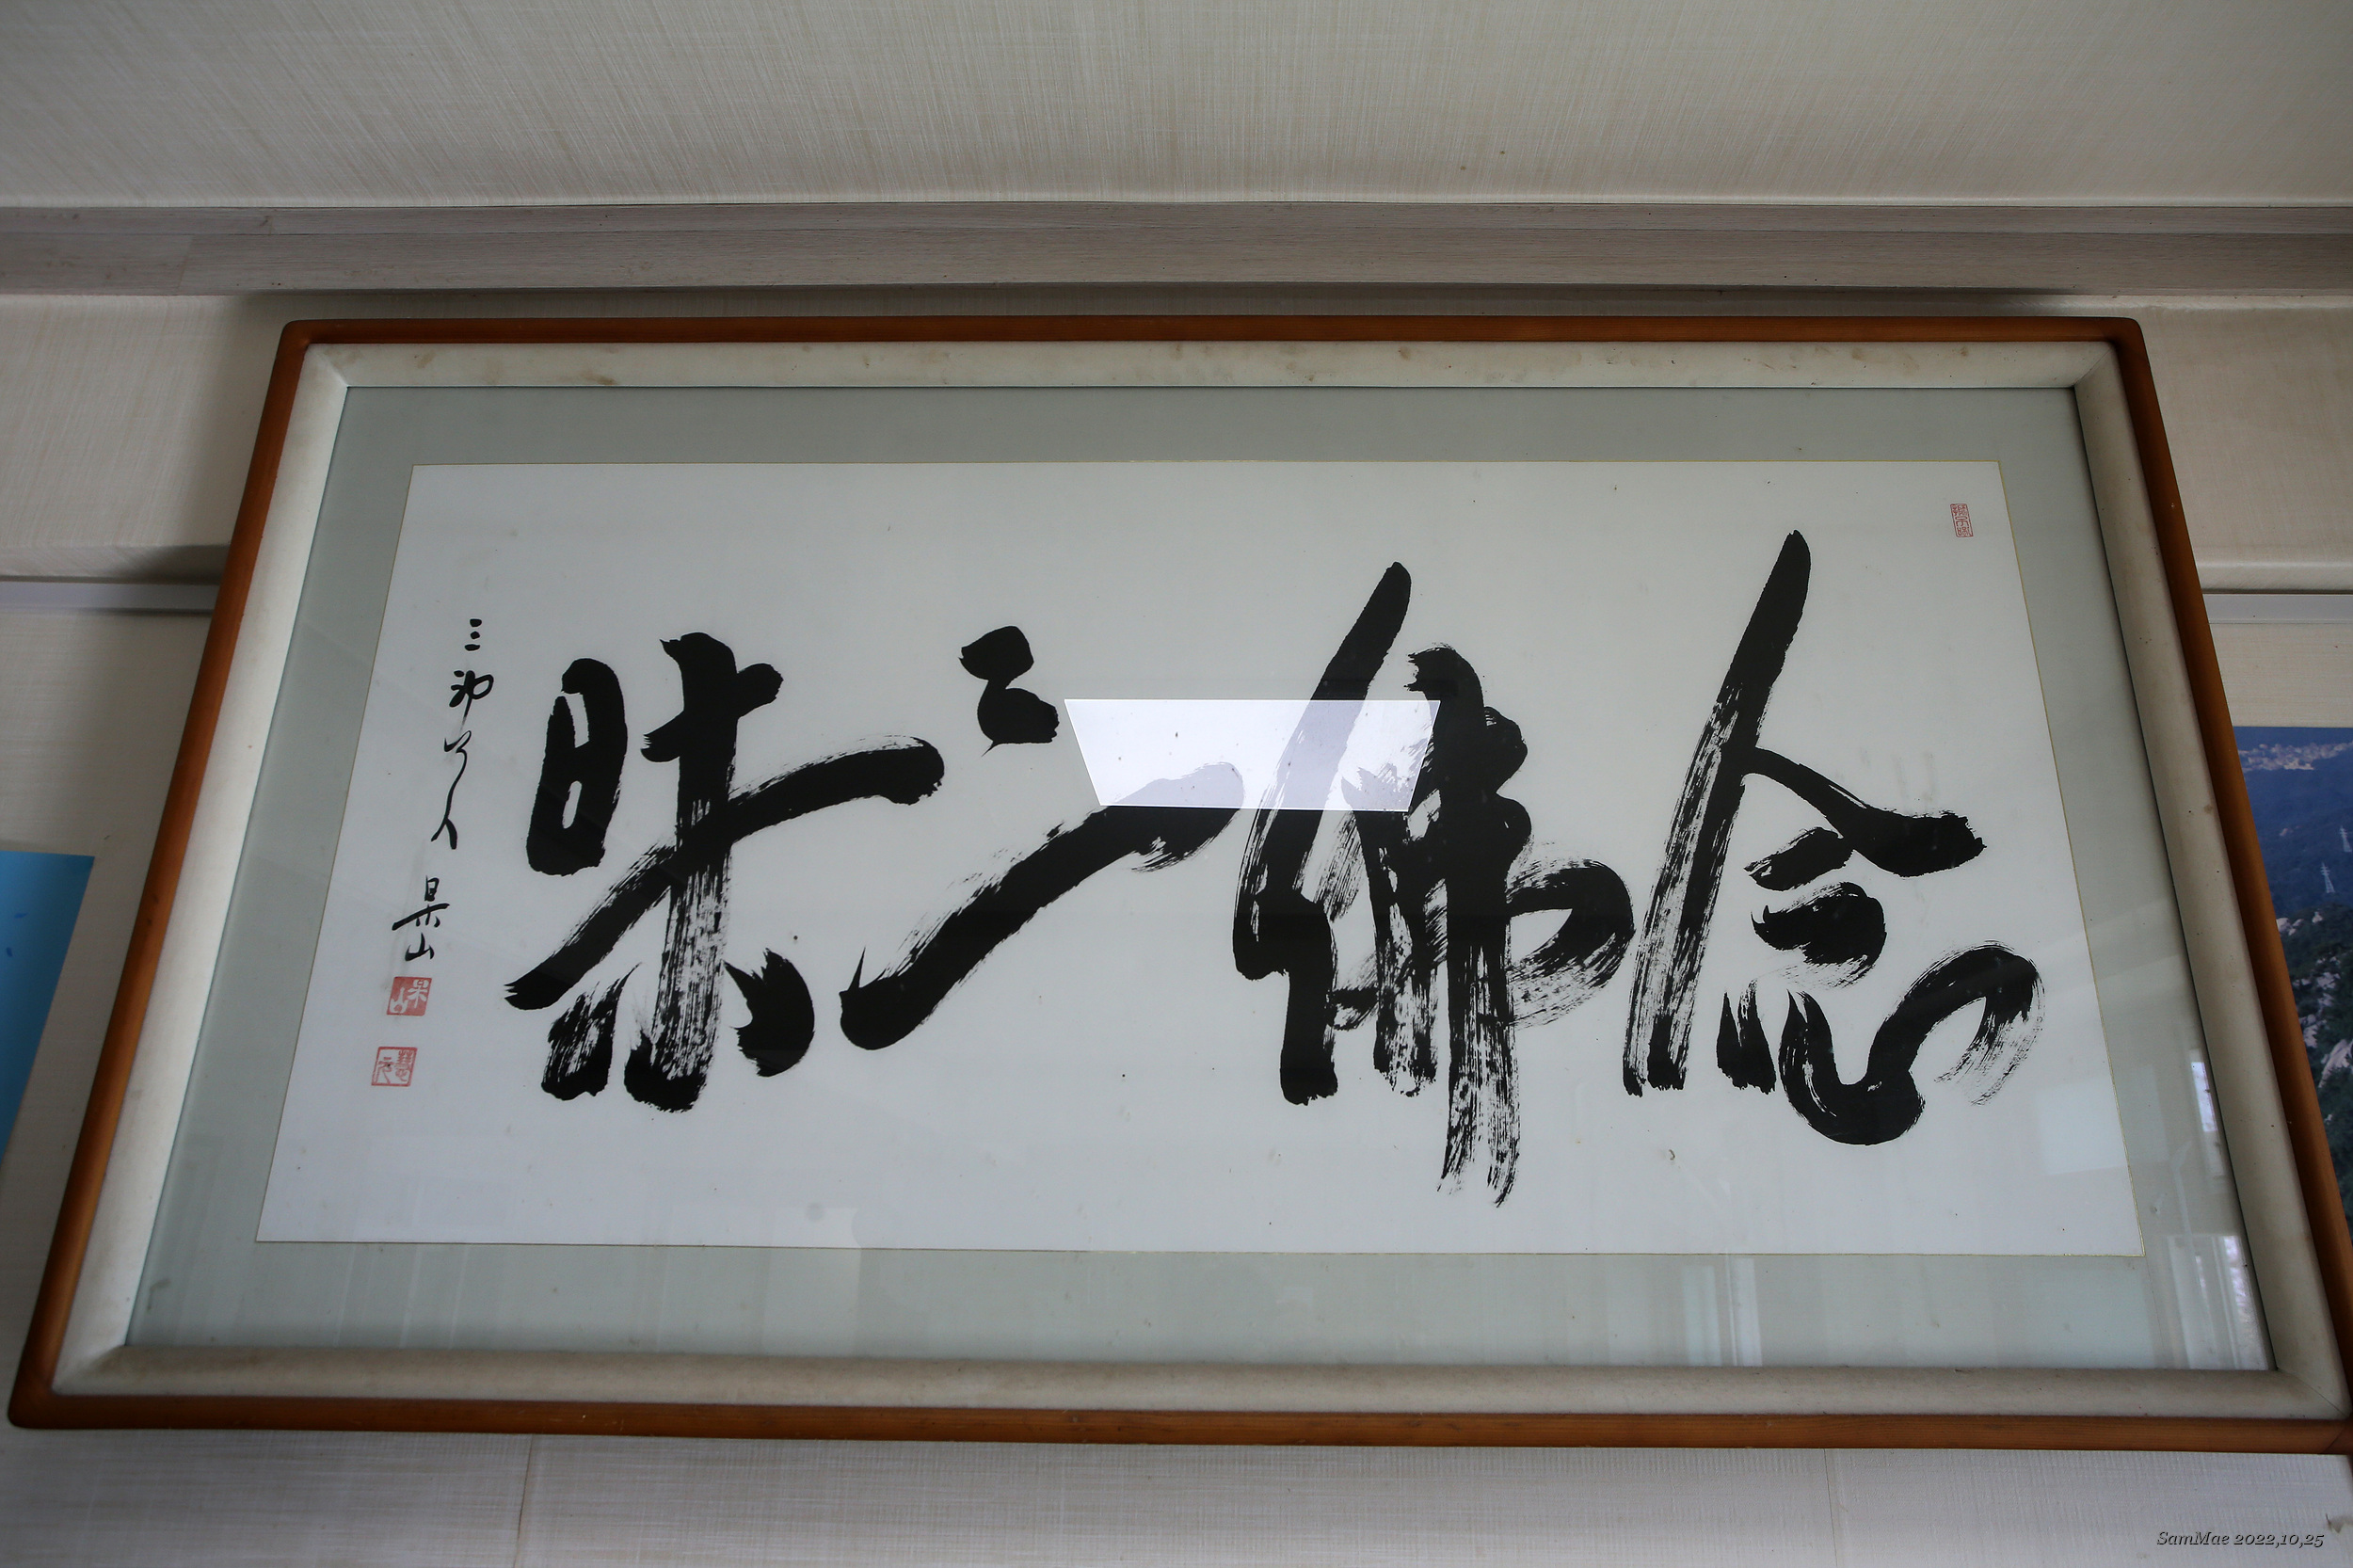 念佛三昧
三神山人 杲山
杲山
慧元
SamMae 2022,10,25